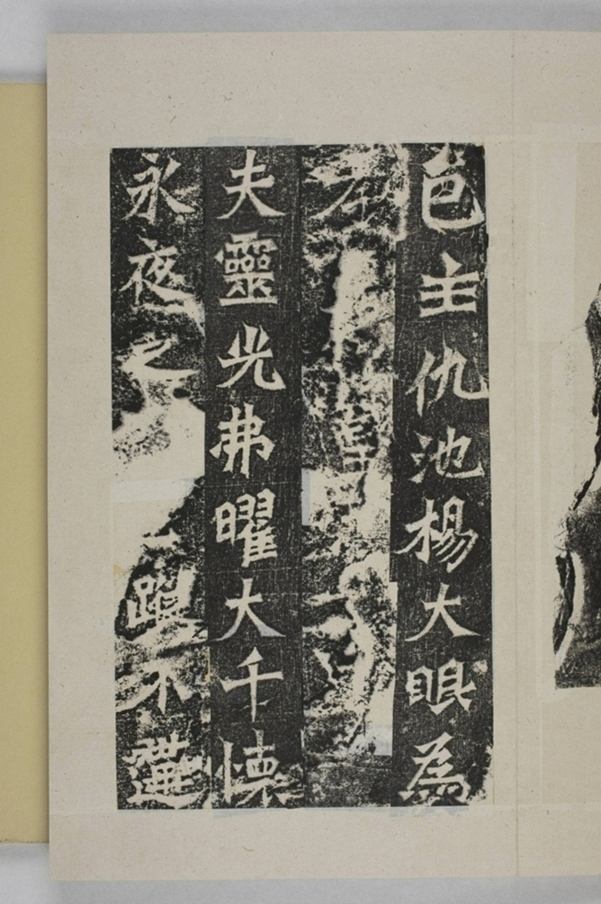 邑主仇池楊大眼為
孝 皇
夫靈光弗曜大千懷
永夜之 蹤不遘